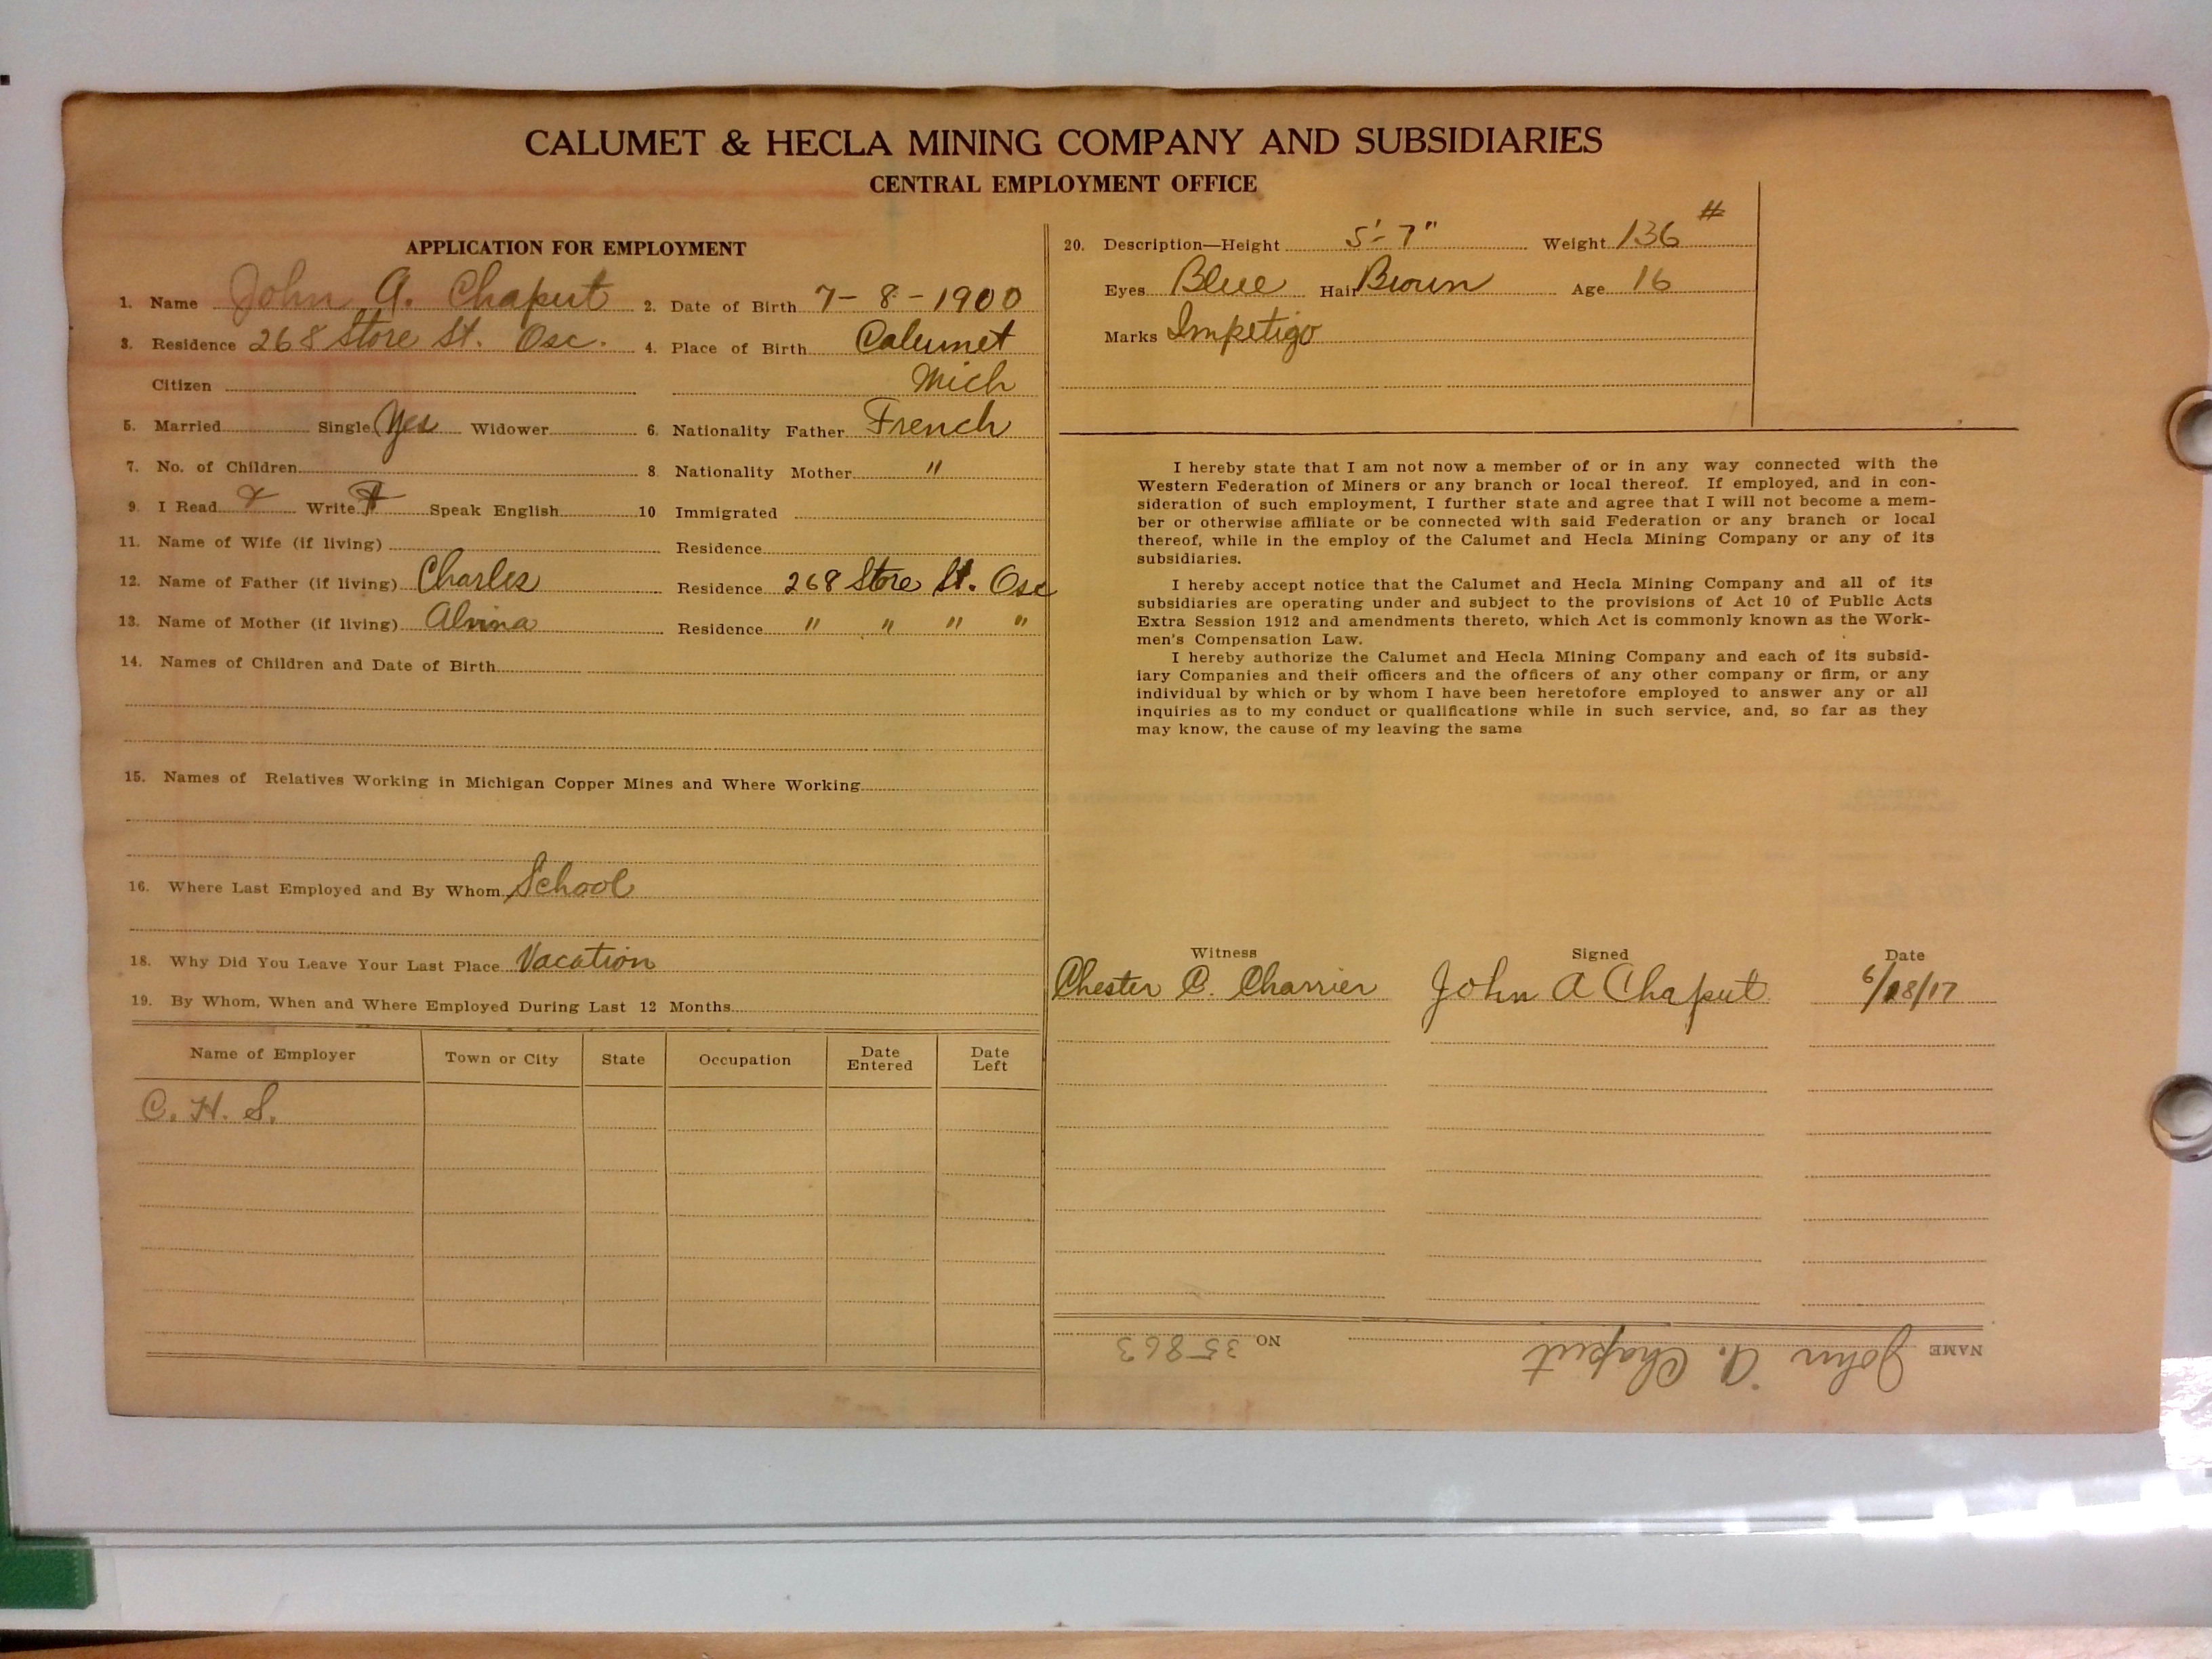 CALUMET & HECLA MINING COMPANY AND SUBSIDIARIES
CENTRAL EMPLOYMENT OFFICE
APPLICATION FOR EMPLOYMENT
1. Name John A. Chaput 2. Date of Birth 7-8-1900
3. Residence 268 Store St. Osc. 4. Place of Birth Calumet
Citizen Mich
5. Married Single Yes Widower 6. Nationality Father French
7. No. of Children 8. Nationality Mother "
9. I Read Write Speak English 10 Immigrated
11. Name of Wife (if living) Residence
12. Name of Father (if living) Charles Residence 268 Store St. Osc
13. Name of Mother (if living) Alvina Residence " " " "
14. Names of Children and Date of Birth
15. Names of Relatives Working in Michigan Copper Mines and Where Working
16. Where Last Employed and By Whom School
18. Why Did You Leave Your Last Place Vacation
19. By Whom, When and Where Employed During Last 12 Months
Name of Employer Town or City State Occupation Date Entered Date Left
C. H. S.
20. Description—Height 5'-7" Weight 136 #
Eyes Blue Hair Brown Age 16
Marks Impetigo
I hereby state that I am not now a member of or in any way connected with the
Western Federation of Miners or any branch or local thereof. If employed, and in con-
sideration of such employment, I further state and agree that I will not become a mem-
ber or otherwise affiliate or be connected with said Federation or any branch or local
thereof, while in the employ of the Calumet and Hecla Mining Company or any of its
subsidiaries.
I hereby accept notice that the Calumet and Hecla Mining Company and all of its
subsidiaries are operating under and subject to the provisions of Act 10 of Public Acts
Extra Session 1912 and amendments thereto, which Act is commonly known as the Work-
men's Compensation Law.
I hereby authorize the Calumet and Hecla Mining Company and each of its subsid-
iary Companies and their officers and the officers of any other company or firm, or any
individual by which or by whom I have been heretofore employed to answer any or all
inquiries as to my conduct or qualifications while in such service, and, so far as they
may know, the cause of my leaving the same
Witness Signed Date
Chester C. Charrier John A Chaput 6/18/17
NAME John A. Chaput NO 35863